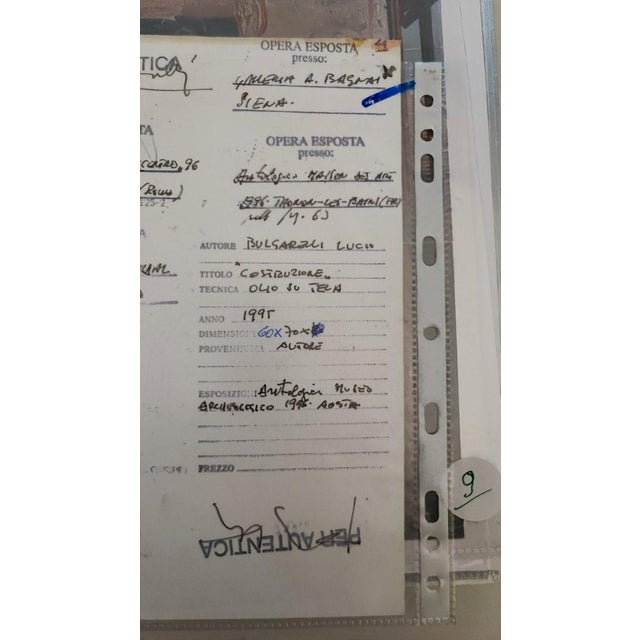 OPERA ESPOSTA
presso:
GALLERIA A. BAGNAI
SIENA.
OPERA ESPOSTA
presso:
Antologica MAISON DES ARTS
1996. THONON-LES-BAINS (FR)
AUTORE BULGARELLI LUCIO
TITOLO "COSTRUZIONE"
TECNICA OLIO SU TELA
ANNO 1995
DIMENSIONI 60X70X
PROVENIENZA AUTORE
ESPOSIZIONI Antologica MUSEO
ARCHEOLOGICO 1995. AOSTA
PREZZO
PER AUTENTICA
TICA
TA
96
9